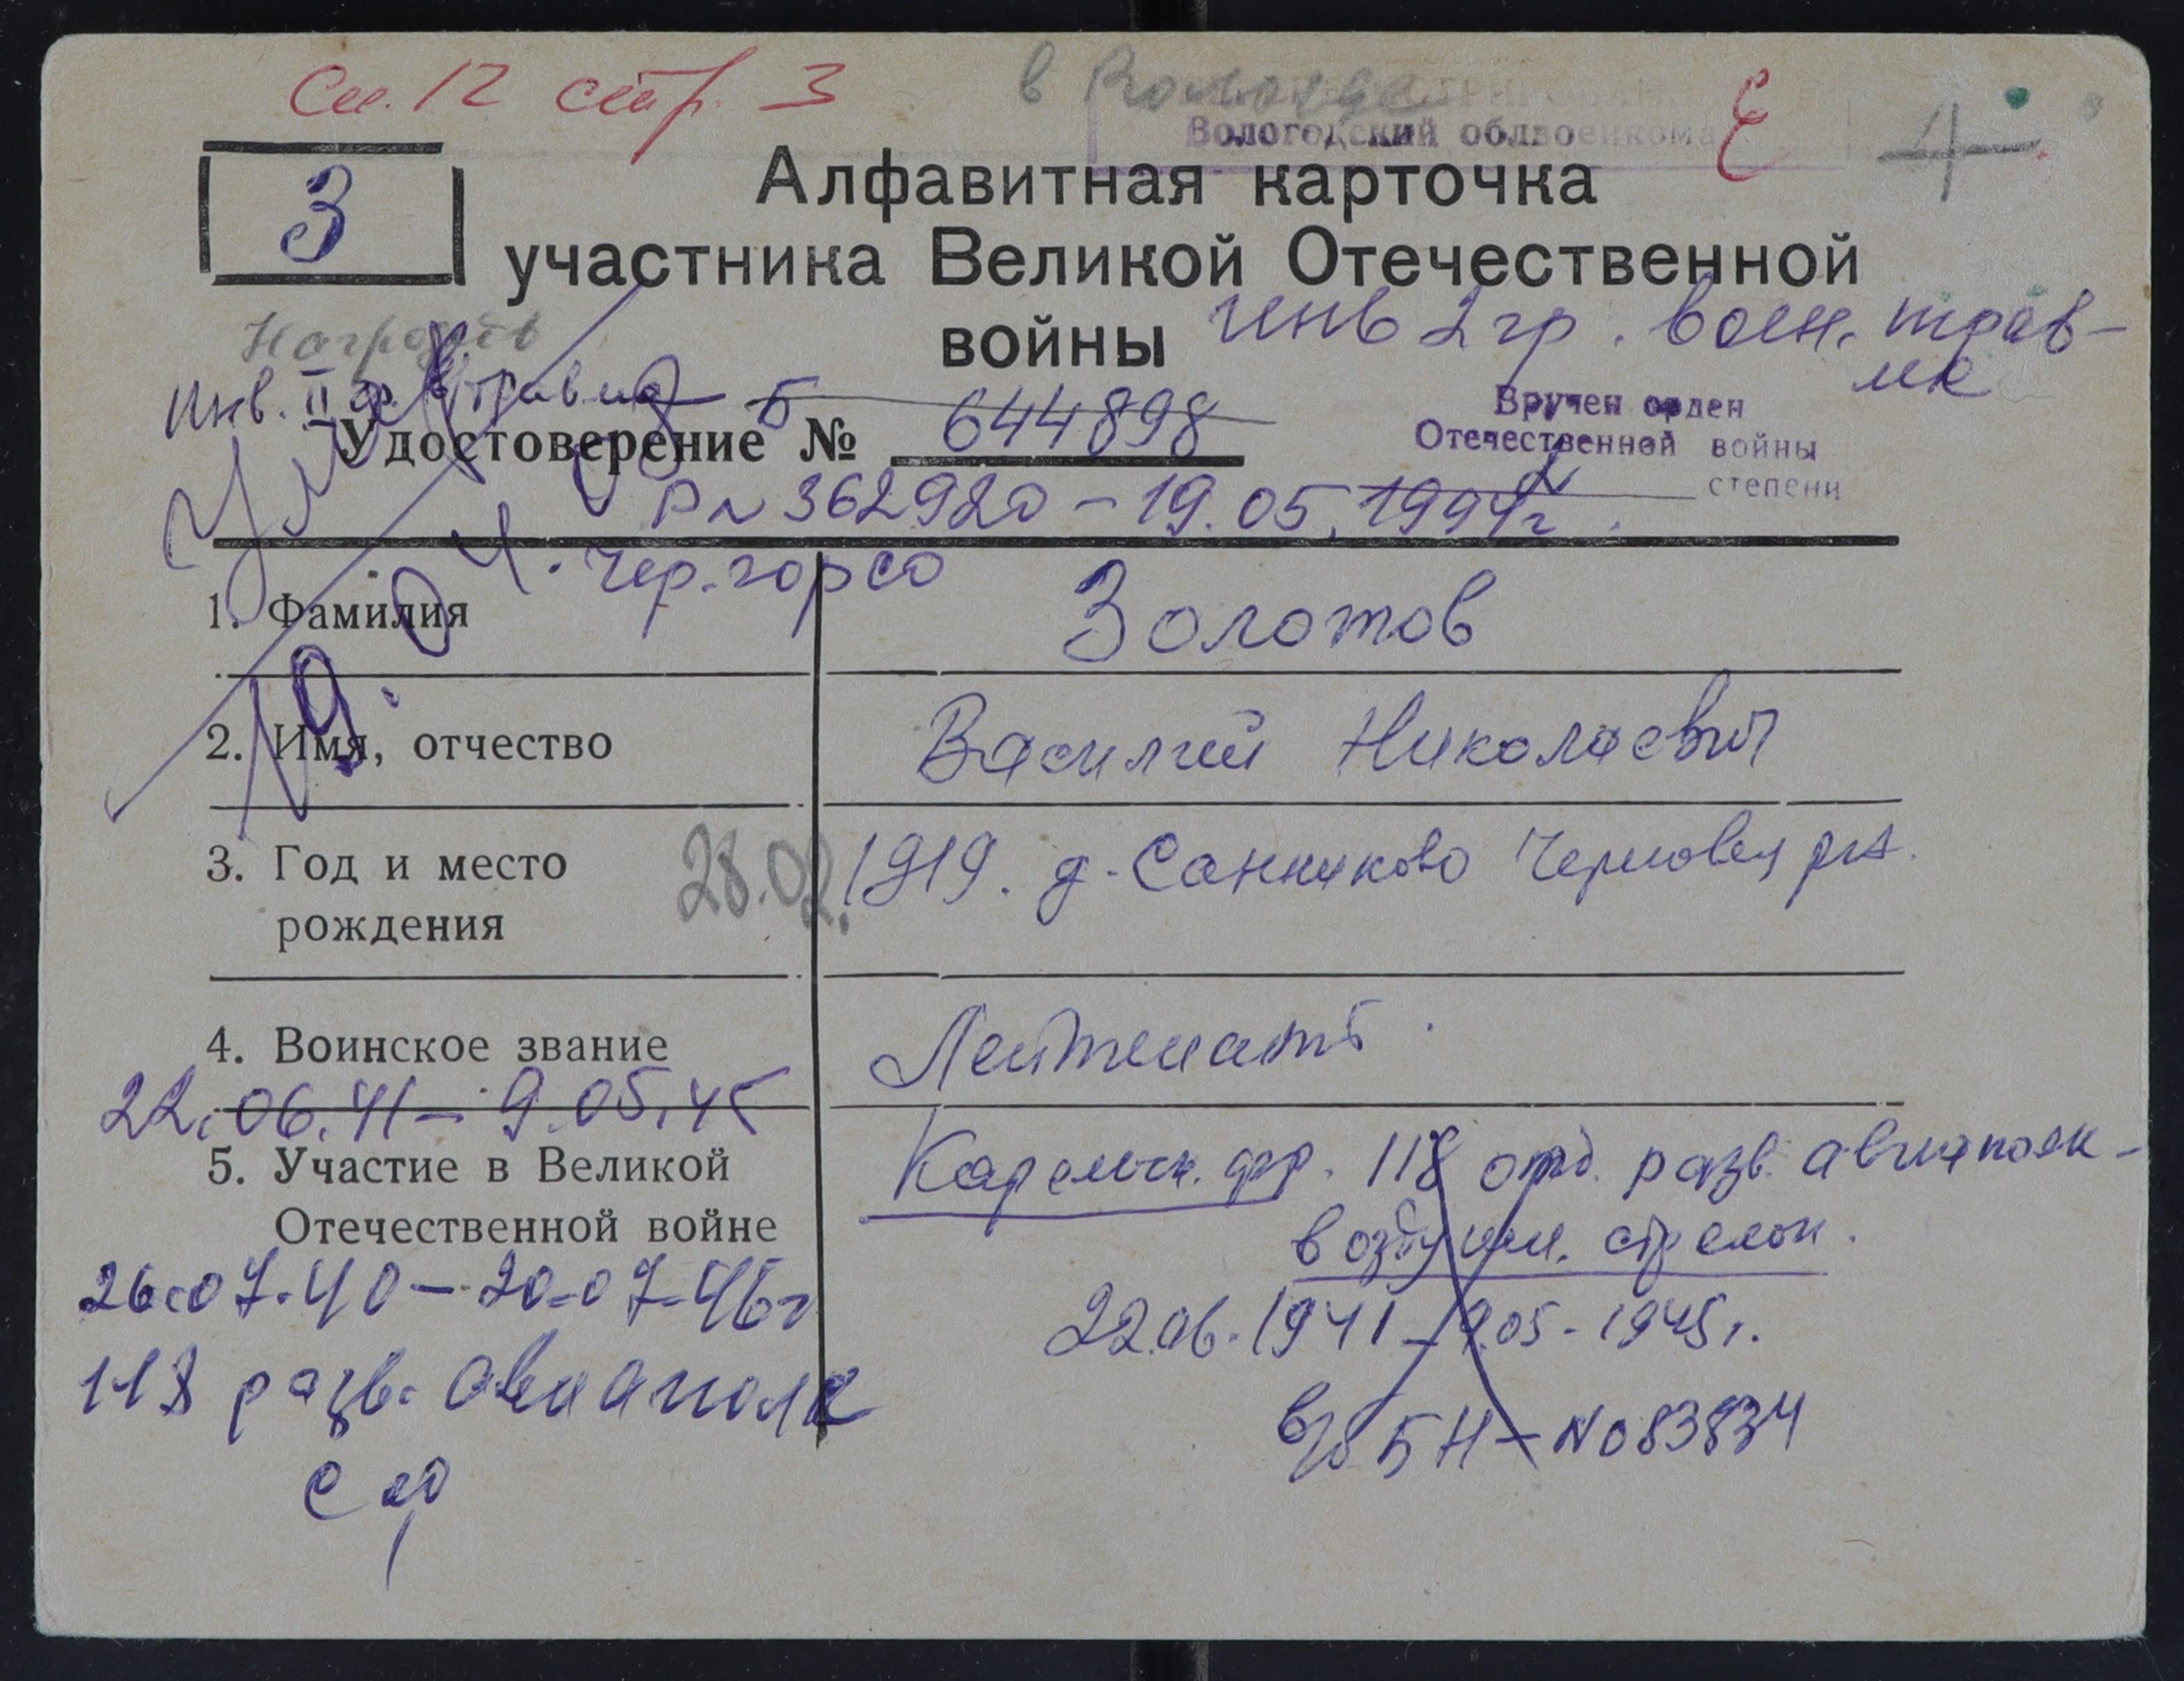 Сп. 12 стр. 3
в Вологде
Вологодский облвоенкома
4
З
Алфавитная карточка
участника Великой Отечественной
войны
инв 2 гр. воен. трав-
ма
инв. II гр. в/травма Б
Удостоверение № 644898
Вручен орден
Отечественной войны
степени
Р № 362920 – 19.05.1994г.
Умер
19.04.
Чер. горсо
1. Фамилия Золотов
2. Имя, отчество Василий Николаевич
3. Год и место 28.02. 1919. д. Санниково Черповец р-н.
рождения
4. Воинское звание Лейтенант
22.06.41 – 9.05.45
5. Участие в Великой Карельск. фр. 118 отд. разв. авиаполк –
Отечественной войне воздушн. стрелок.
26.07.40 – 20.07.46г
22.06.1941 – 9.05.1945г.
118 разв. авиаполк
БН – № 083834